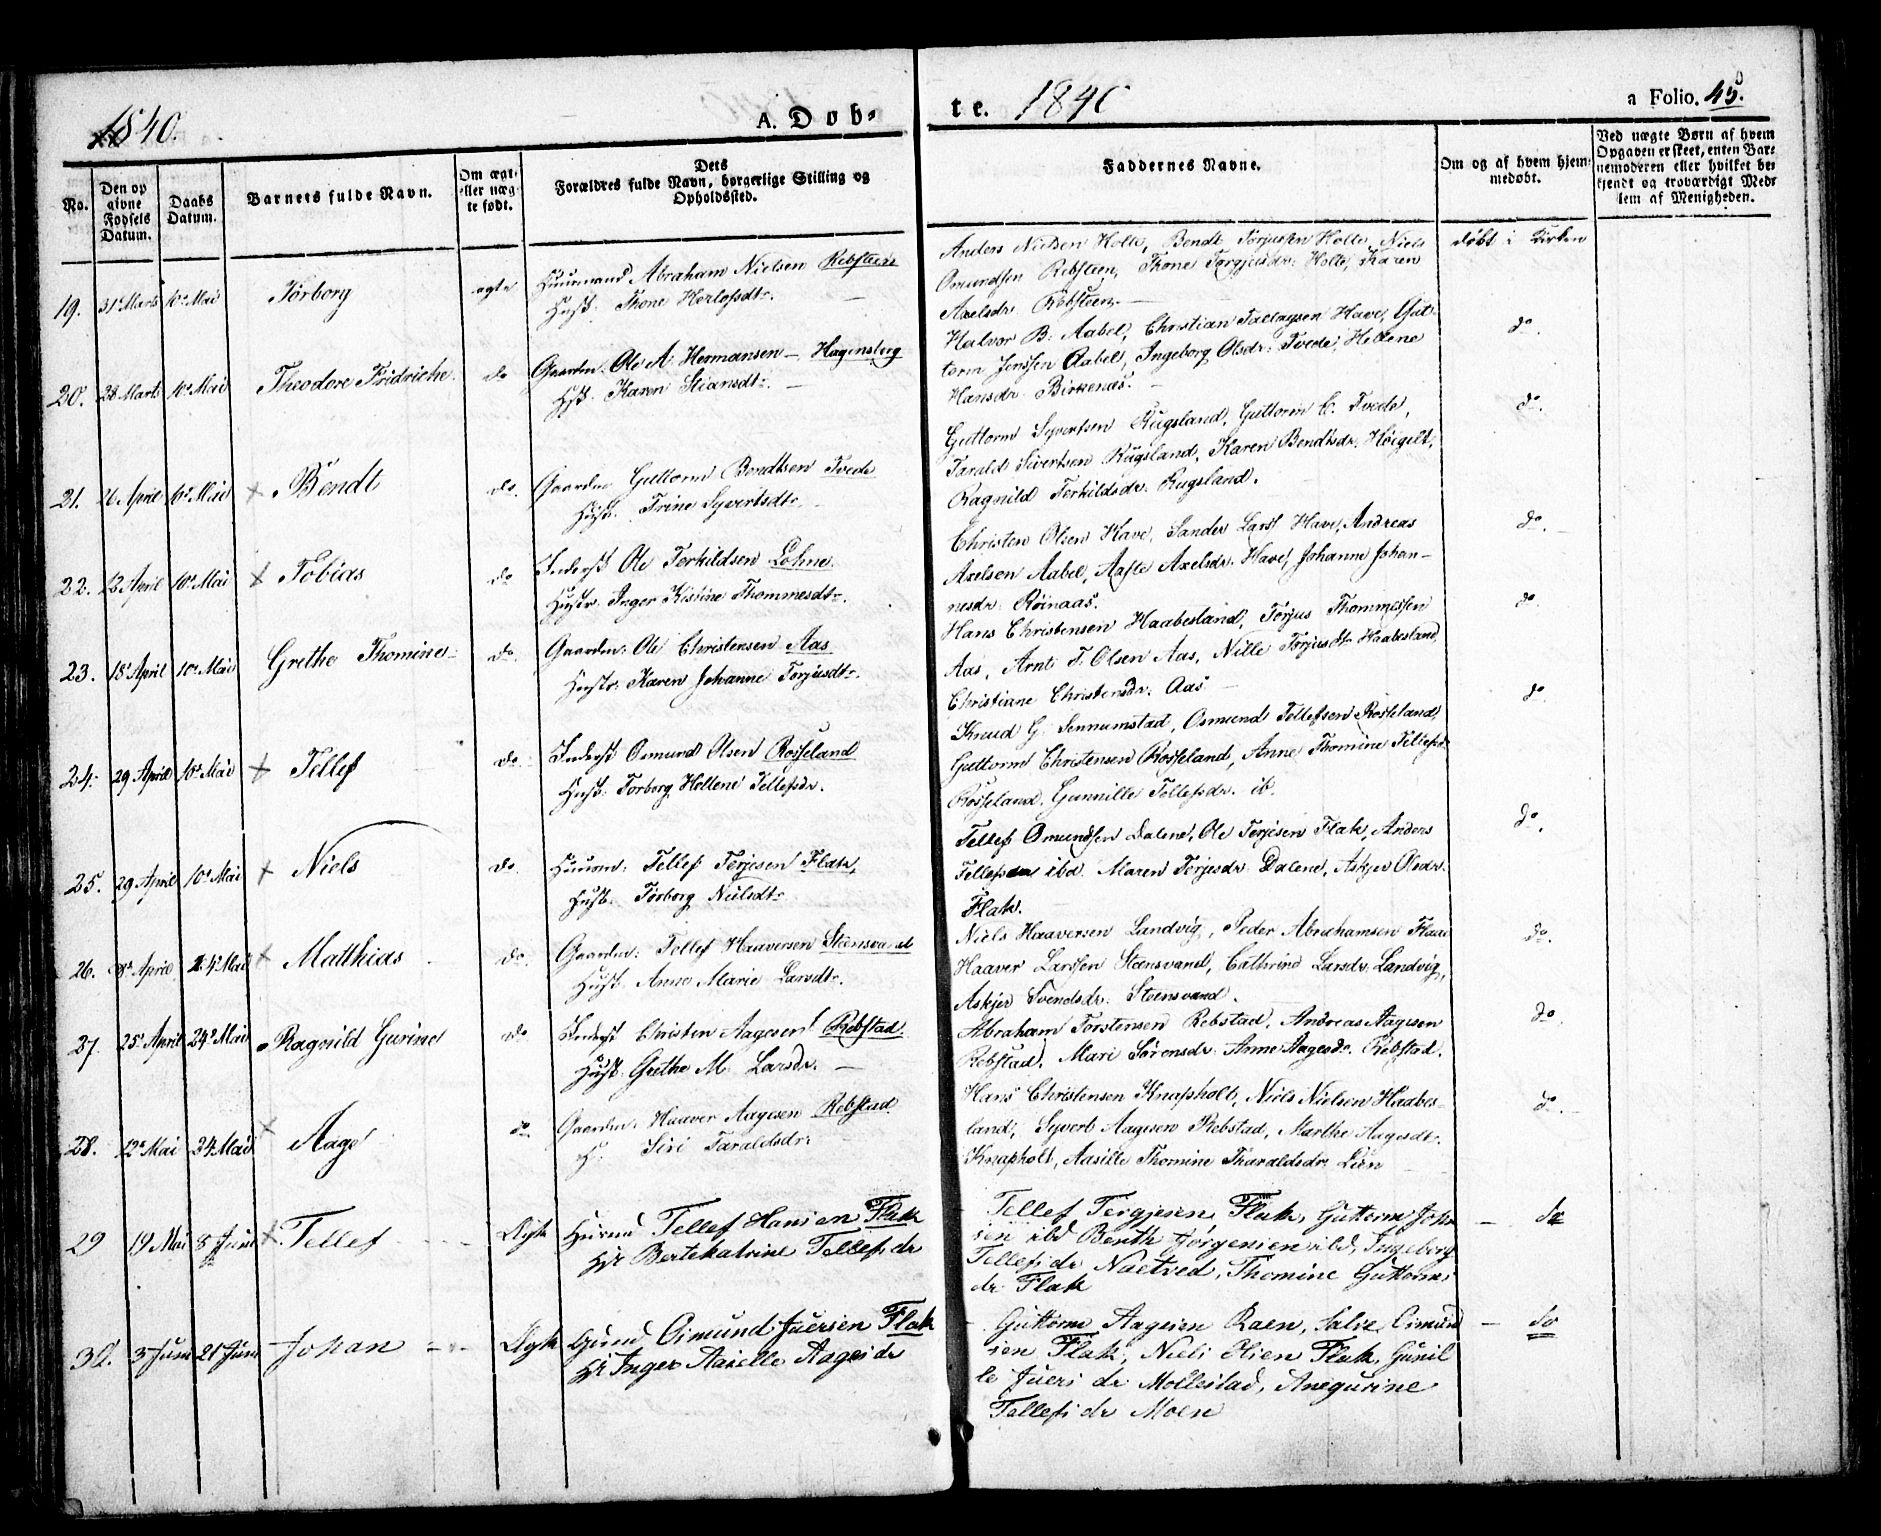 1840.
A. Døb-
te.
1840
a Folio. 45.
No.
Den opgivne Fødsels Datum.
Daabs Datum.
Barnets fulde Navn.
Om ægte eller nægte født.
Dets Forældres fulde Navn, borgerlige Stilling og Opholdssted.
Faddernes Navne.
Om og af hvem hjemmedøbt.
Ved nægte Børn af hvem Opgaven er skeet, enten Barnemoderen eller hvilket bekjendt og troværdigt Medlem af Menigheden.
19. 31 Marts 10de Mai Torborg ægte Huusmand Abraham Nielsen Rebsteen
Hust. Thone Herlofsdtr.
Anders Nielsen Holte, Bendt Torjussen Holte, Niels
Omundsen Rebsteen, Thone Torgjusdr. Holte, Karen
Axelsdr. Rebsteen.
døbt i Kirken
20. 28 Marts 10de Mai Theodore Fridriche do Gaardm. Ole A. Hermansen Hagensborg
Hst. Karen Stiansdtr.
Halvor B. Aabel, Christian Tallaksen Have, Gut-
torm Jenssen Aabel, Ingeborg Olsdr. Tvede, Hellene
Hansdr. Birkenæs.
do.
21. 26 April 10de Mai Bendt do. Gaardm Guttorm Bendtsen Tvede
Hust. Trine Syvertsdtr.
Guttorm Syvertsen Rugsland, Guttorm C. Tvede,
Tarald Sivertsen Rugsland, Karen Bendtsdr. Høigilt,
Ragnild Terkildsdr. Rugsland.
do.
22. 12 April 10de Mai Tobias do Inderst Ole Terkildsen Lohne
Hustr. Inger Kistine Thommesdtr.
Christen Olsen Have, Sander Lars. Have, Andreas
Axelsen Aabel, Aaste Axelsdr. Have, Johanne Johan-
nesdr. Røinaas.
do.
23. 18 April 10de Mai Grethe Thomine do. Gaardm: Ole Christensen Aas
Hustr: Karen Johanne Torjusdtr.
Hans Christensen Haabesland, Torjus Thommessen
Aas, Arnt T. Olsen Aas, Nille Torjusdtr Haabesland,
Christiane Christensdr. Aas.
do.
24. 29 April 10de Mai Tellef do. Inderst Osmund Olsen Rosseland
Hust. Torborg Hellene Tellefsdr.
Knud G. Sennumstad, Osmund Tellefsen Rosseland,
Guttorm Christensen Rosseland, Anne Thomine Tellefsdr
Rosseland. Gunnille Tellefsdr. ib.
do
25. 29 April 10de Mai Niels do. Huusm: Tellef Terjesen Flak,
Hust. Torborg Nielsdtr
Tellef Omundsen Dalene, Ole Terjesen Flak, Anders
Tellefsen ibd. Maren Terjesdr. Dalene, Askjer Olsdr.
Flak.
do.
26. 8de April 24de Mai Matthias do. Gaardm: Tellef Haaversen Steensvand
Hust. Anne Marie Larsdtr.
Niels Haaversen Landvig, Peder Abrahamsen Flaa
Haaver Larssen Steensvand, Cathrine Larsdr. Landvig,
Askjer Svendsdr. Steensvand.
do.
27. 25de April 24de Mai Ragnild Gurine do. Inderst Christen Aagesen Rebstad.
Hust. Grethe M. Larsdr.
Abraham Torstensen Rebstad, Andreas Aagesen
Rebstad, Mari Sørensdr. Anne Aagesdr. Rebstad.
do.
28. 12te Mai 24 Mai Aage do Gaardm: Haaver Aagesen Rebstad
H. Siri Taraldsdr.
Hans Christensen Knapholt, Niels Nielsen Haabes-
land, Syvert Aagesen Rebstad, Marthe Aagesdtr.
Knapholt, Aasille Thomine Tharaldsdr. Lien
do.
29 19 Mai 8 Juni Tellef Ægte Husmd Tellef Hansen Flak
Hst Bertekatrine Tellefsdr
Tellef Tergjesen Flak, Guttorm John
sen ibd Benth Jørgensen ibd, Ingeborg
Tellefsdr Naetved, Thomine Guttorms
dr Flak
do
30. 3 Juni 21 Juni Johan Ægte Gmd Osmund Juersen Flak
Hst Inger Aaselle Aagesdr
Guttorm Aagesen Raen, Salve Osmund
sen Flak, Niels Olsen Flak, Gunil
le Juersdr Mollestad, Anegurine
Tellefsdr Moen
do